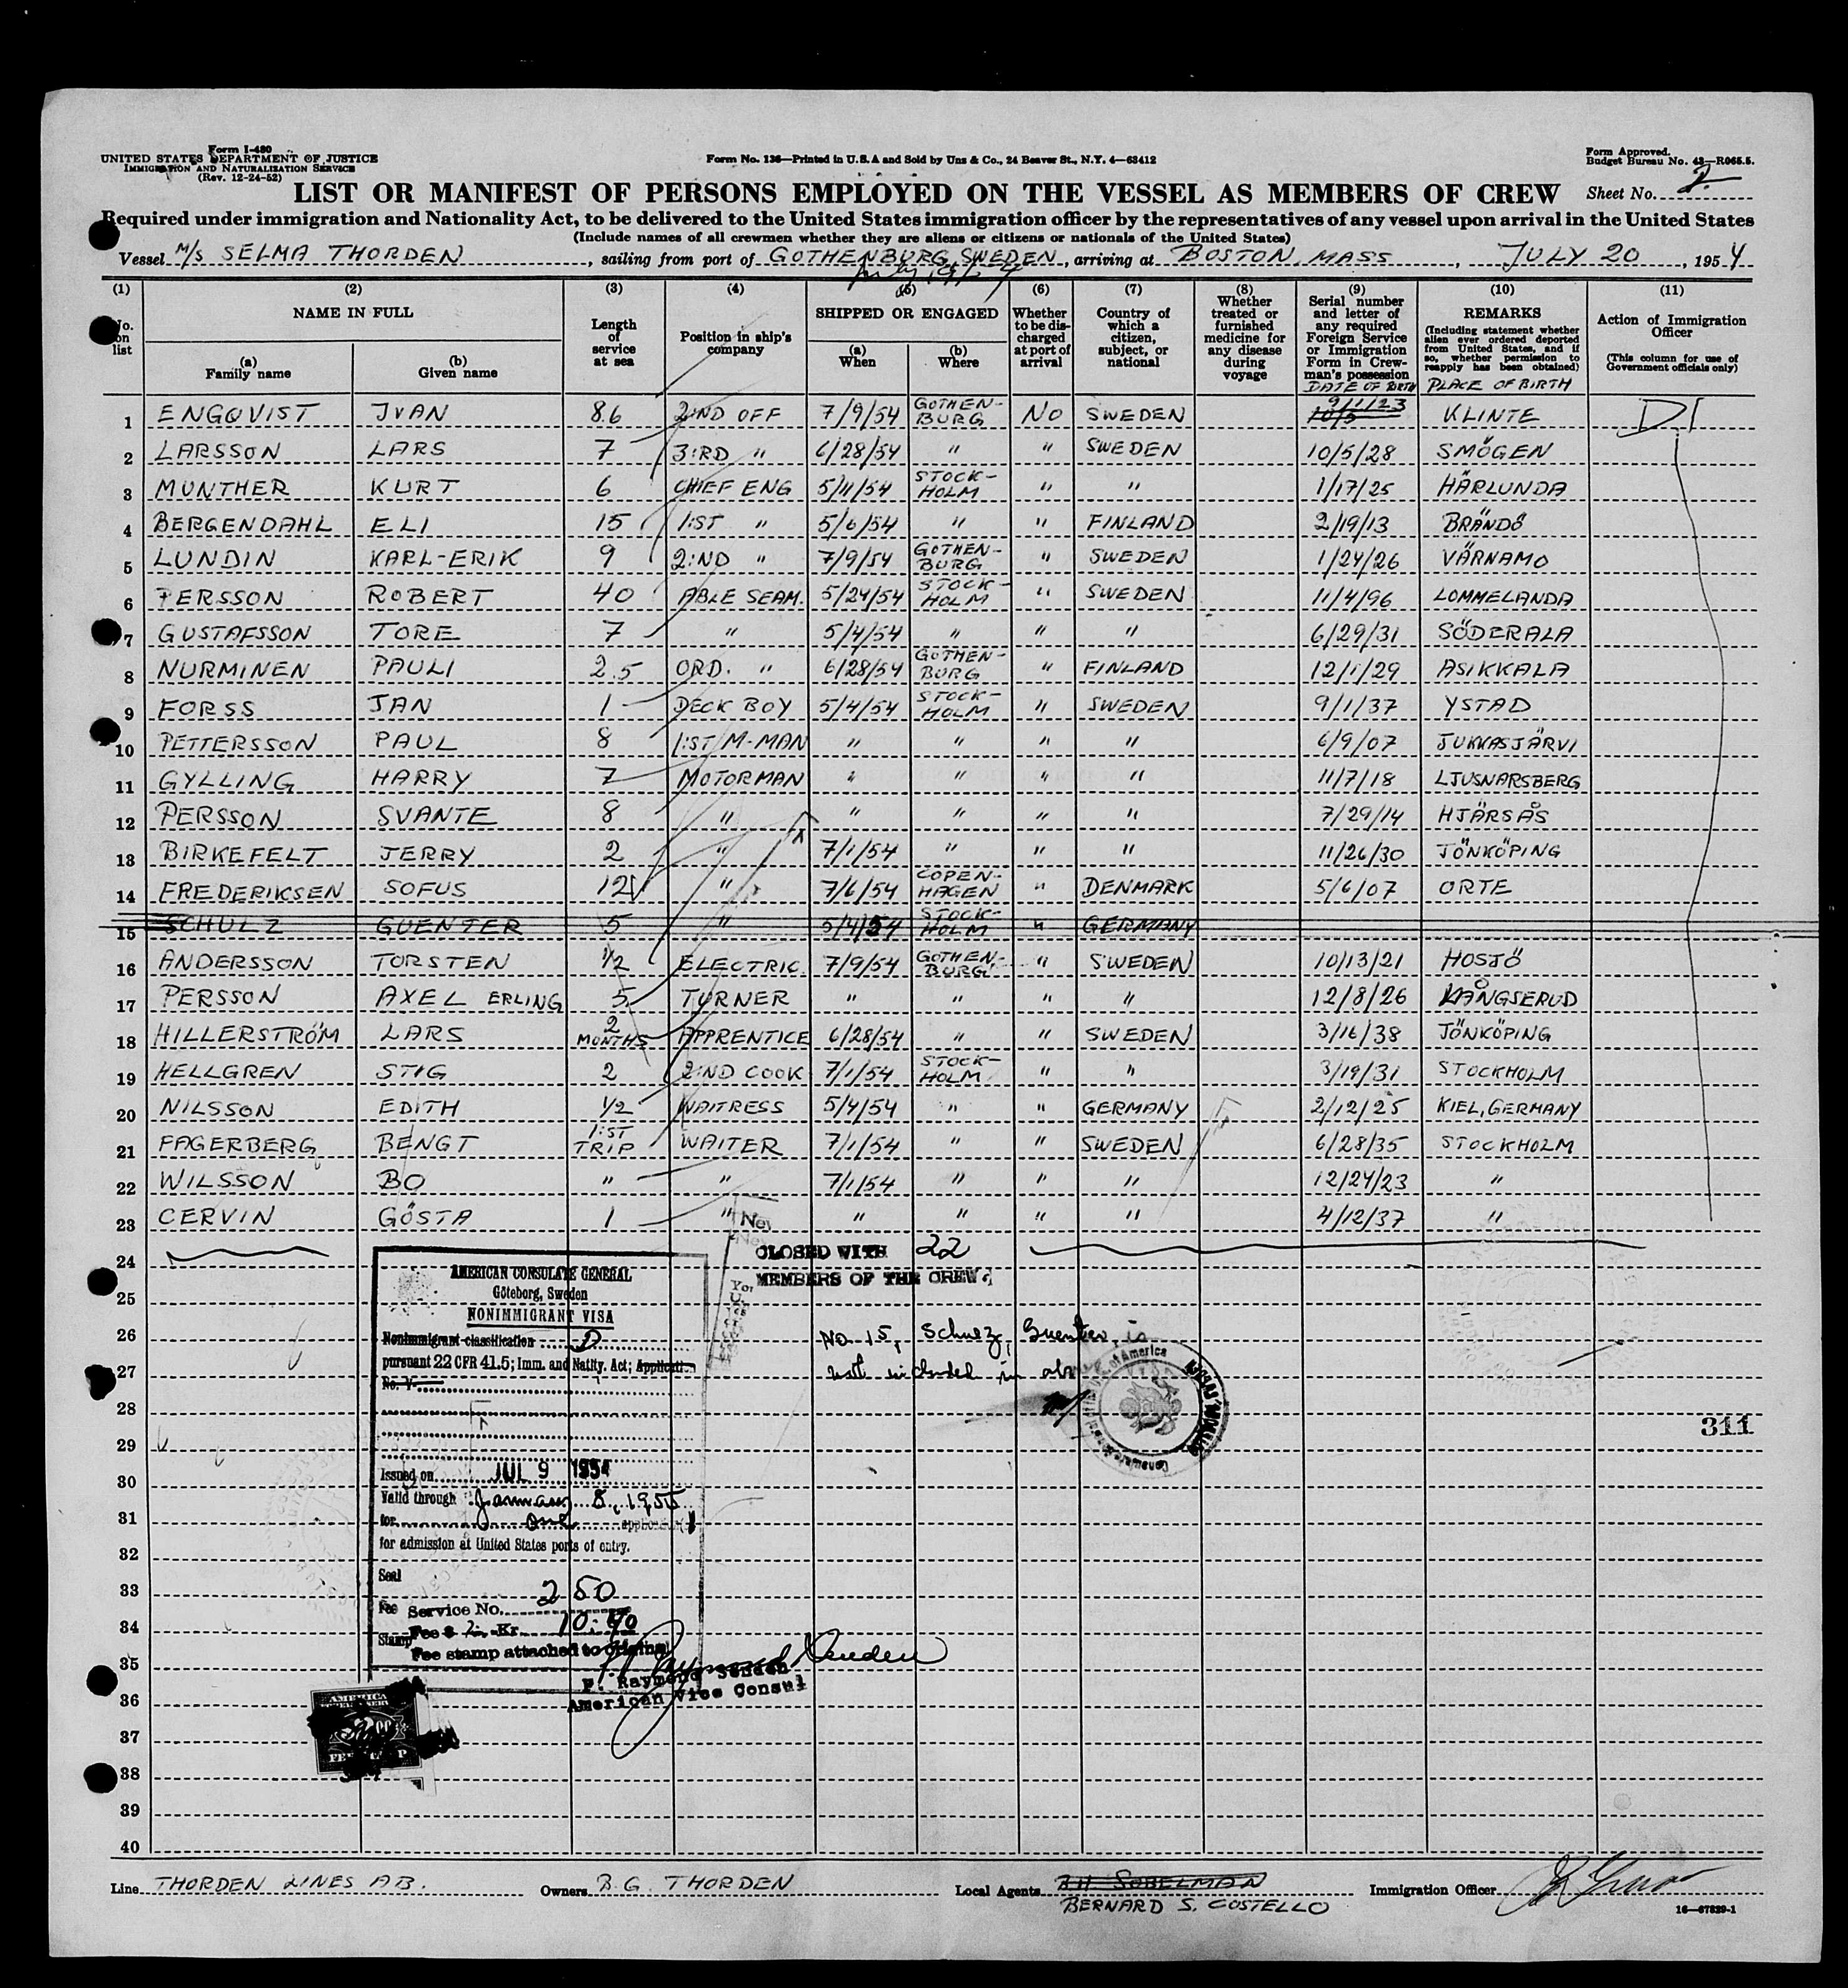 Form I-480
UNITED STATES DEPARTMENT OF JUSTICE
IMMIGRATION AND NATURALIZATION SERVICE
(Rev. 12-24-52)
Form No. 136—Printed in U.S.A and Sold by Unz & Co., 24 Beaver St., N.Y. 4—63412
Form Approved.
Budget Bureau No. 43—R065.5.
LIST OR MANIFEST OF PERSONS EMPLOYED ON THE VESSEL AS MEMBERS OF CREW
Sheet No. 2
Required under immigration and Nationality Act, to be delivered to the United States immigration officer by the representatives of any vessel upon arrival in the United States
(Include names of all crewmen whether they are aliens or citizens or nationals of the United States)
Vessel M/S SELMA THORDEN, sailing from port of GOTHENBURG, SWEDEN, arriving at BOSTON MASS, JULY 20, 1954
(1) (2) (3) (4) (5) (6) (7) (8) (9) (10) (11)
No. on list
NAME IN FULL
(a) Family name
(b) Given name
Length of service at sea
Position in ship's company
SHIPPED OR ENGAGED
(a) When
(b) Where
Whether to be discharged at port of arrival
Country of which a citizen, subject, or national
Whether treated or furnished medicine for any disease during voyage
Serial number and letter of any required Foreign Service or Immigration Form in Crewman's possession
DATE OF BIRTH
REMARKS
(Including statement whether alien ever ordered deported from United States, and if so, whether permission to reapply has been obtained)
PLACE OF BIRTH
Action of Immigration Officer
(This column for use of Government officials only)
1 ENGQVIST IVAN 8.6 2:ND OFF 7/9/54 GOTHENBURG NO SWEDEN 9/1/23 10/5 KLINTE D1
2 LARSSON LARS 7 3:RD " 6/28/54 " " SWEDEN 10/5/28 SMÖGEN
3 MUNTHER KURT 6 CHIEF ENG 5/11/54 STOCKHOLM " " 1/17/25 HÄRLUNDA
4 BERGENDAHL ELI 15 1:ST " 5/6/54 " " FINLAND 2/19/13 BRÄNDÖ
5 LUNDIN KARL-ERIK 9 2:ND " 7/9/54 GOTHENBURG " SWEDEN 1/24/26 VÄRNAMO
6 PERSSON ROBERT 40 ABLE SEAM. 5/24/54 STOCKHOLM " SWEDEN 11/4/96 LOMMELANDA
7 GUSTAFSSON TORE 7 " 5/4/54 " " " 6/29/31 SÖDERALA
8 NURMINEN PAULI 2.5 ORD. " 6/28/54 GOTHENBURG " FINLAND 12/1/29 ASIKKALA
9 FORSS JAN 1 DECK BOY 5/4/54 STOCKHOLM " SWEDEN 9/1/37 YSTAD
10 PETTERSSON PAUL 8 1:ST M-MAN " " " " 6/9/07 JUKKASJÄRVI
11 GYLLING HARRY 7 MOTORMAN " " " " 11/7/18 LJUSNARSBERG
12 PERSSON SVANTE 8 " " " " " 7/29/14 HJÄRSÅS
13 BIRKEFELT JERRY 2 " 7/1/54 " " " 11/26/30 JÖNKÖPING
14 FREDERIKSEN SOFUS 12 " 7/6/54 COPENHAGEN " DENMARK 5/6/07 ORTE
15 SCHULZ GUENTER 5 " 5/4/54 STOCKHOLM " GERMANY
16 ANDERSSON TORSTEN 1/2 ELECTRIC. 7/9/54 GOTHENBURG " SWEDEN 10/13/21 HOSJÖ
17 PERSSON AXEL ERLING 5 TURNER " " " " 12/8/26 LÅNGSERUD
18 HILLERSTRÖM LARS 2 MONTHS APPRENTICE 6/28/54 " " SWEDEN 3/16/38 JÖNKÖPING
19 HELLGREN STIG 2 2:ND COOK 7/1/54 STOCKHOLM " " 3/19/31 STOCKHOLM
20 NILSSON EDITH 1/2 WAITRESS 5/4/54 " " GERMANY 2/12/25 KIEL, GERMANY
21 FAGERBERG BENGT 1:ST TRIP WAITER 7/1/54 " " SWEDEN 6/28/35 STOCKHOLM
22 WILSSON BO " " 7/1/54 " " " 12/24/23 "
23 CERVIN GÖSTA 1 " " " " " 4/12/37 "
24
25
26
27
28
29
30
31
32
33
34
35
36
37
38
39
40
CLOSED WITH 22
MEMBERS OF THE CREW
No. 15, Schulz, Guenter, is
not included in
AMERICAN CONSULATE GENERAL
Göteborg, Sweden
NONIMMIGRANT VISA
Nonimmigrant classification D
pursuant 22 CFR 41.5; Imm. and Natity. Act; Application
No. V-
Issued on JUL 9 1954
Valid through January 8, 1955
for one application(s)
for admission at United States ports of entry.
Seal
Fee Service No. 250
Stamp Fee $ 2. Kr. 10:40
Fee stamp attached to original
P. Raymond Senden
American Vice Consul
311
Line THORDEN LINES AB.
Owners B.G. THORDEN
Local Agents B.H SOBELMAN
BERNARD S. COSTELLO
Immigration Officer
16—67829-1